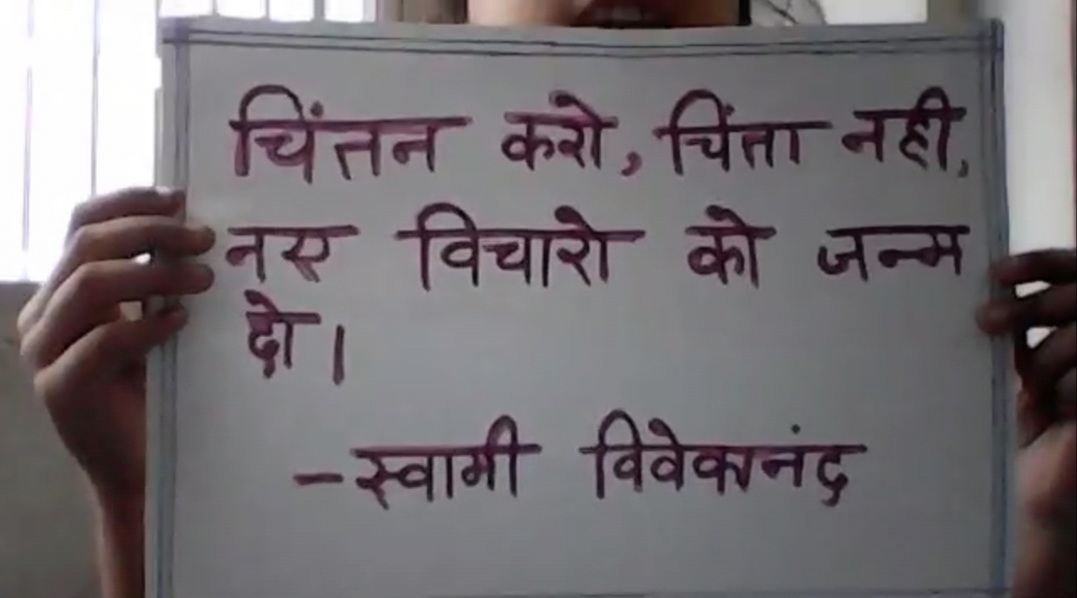 चिंतन करो, चिंता नही,
नए विचारो को जन्म
दो।
-स्वामी विवेकानंद